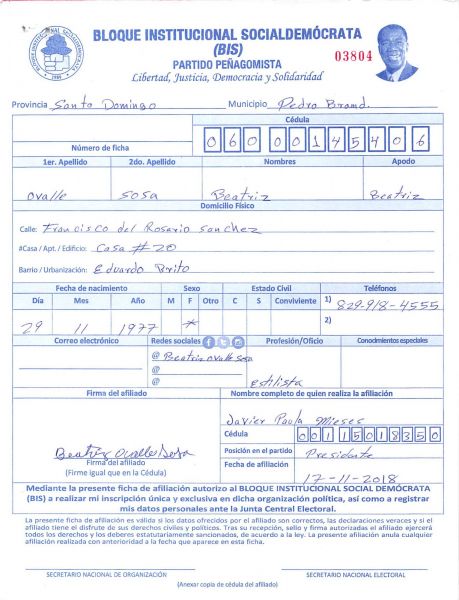 BLOQUE INSTITUCIONAL SOCIALDEMÓCRATA
(BIS)
PARTIDO PEÑAGOMISTA
Libertad, Justicia, Democracia y Solidaridad
03804
Provincia Santo Domingo Municipio Pedro Brand.
Cédula
Número de ficha 060 0014540 6
1er. Apellido 2do. Apellido Nombres Apodo
Ovalle Sosa Beatriz Beatriz
Domicilio Físico
Calle: Francisco del Rosario Sanchez
#Casa / Apt. / Edificio: Casa # 20
Barrio / Urbanización: Eduardo Brito
Fecha de nacimiento Sexo Estado Civil Teléfonos
Día Mes Año M F Otro C S Conviviente 1) 829-918-4555
29 11 1977 * 2)
Correo electrónico Redes sociales Profesión/Oficio Conocimientos especiales
@ Beatriz ovalle sosa
@
@ Estilista
Firma del afiliado Nombre completo de quien realiza la afiliación
Javier Paula Mieses
Cédula 00115018350
Beatriz Ovalle Sosa
Firma del afiliado
(Firme igual que en la Cédula)
Posición en el partido Presidente
Fecha de afiliación 17-11-2018
Mediante la presente ficha de afiliación autorizo al BLOQUE INSTITUCIONAL SOCIAL DEMÓCRATA
(BIS) a realizar mi inscripción única y exclusiva en dicha organización política, así como a registrar
mis datos personales ante la Junta Central Electoral.
La presente ficha de afiliación es válida si los datos ofrecidos por el afiliado son correctos, las declaraciones veraces y si el
afiliado tiene el disfrute de sus derechos civiles y políticos. Tras su recepción, sello y firma autorizadas el afiliado ejercerá
todos los derechos y los deberes estatutariamente sancionados, de acuerdo a la ley. La presente afiliación anula cualquier
afiliación realizada con anterioridad a la fecha que aparece en esta ficha.
SECRETARIO NACIONAL DE ORGANIZACIÓN SECRETARIO NACIONAL ELECTORAL
(Anexar copia de cédula del afiliado)